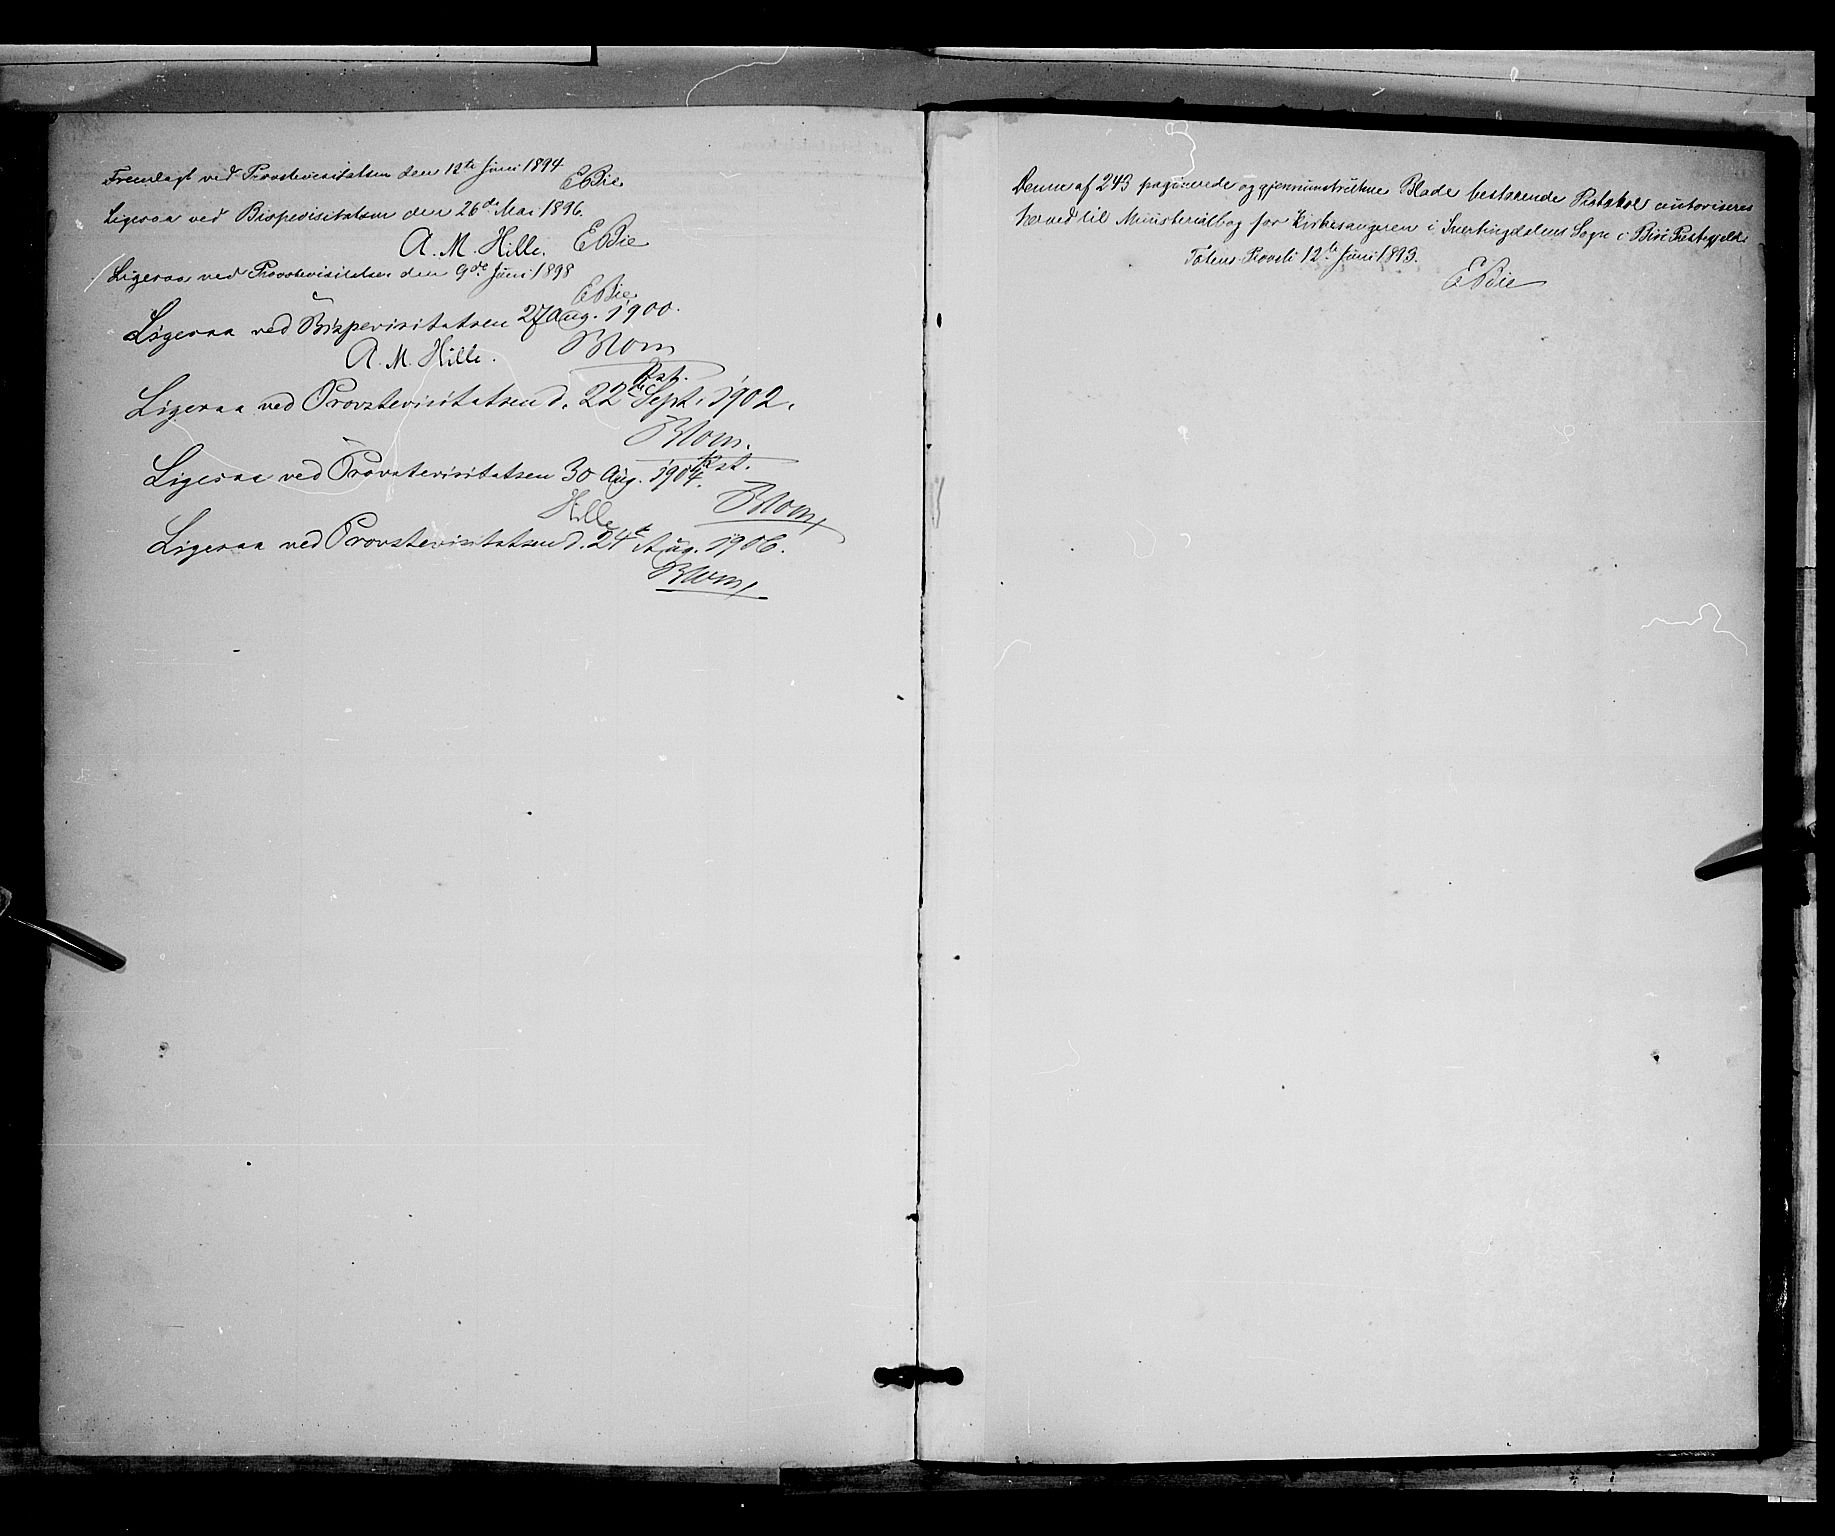 Fremlagt ved Provstevisitatsen den 12te Juni 1894
EBie
Ligesaa ved Bispevisitatsen den 26de Mai 1896.
A. M. Hille. EBie
Ligesaa ved Provstevisitatsen den 9de Juni 1898
EBie
Ligesaa ved Bispevisitatsen 27 Aug. 1900.
A. M. Hille. Blom
Kst.
Ligesaa ved Provstevisitatsen d. 22de Sept. 1902.
Blom.
Kst.
Ligesaa ved Provstevisitatsen 30 Aug. 1904.
Hille Blom
Ligesaa ved Provstevisitatsen d. 24de Aug. 1906.
Blom
Denne af 243 paginerede og gjennemtrukne Blade bestaaende Protokol autoriseres
herved til Ministerialbog for Kirkesangeren i Snertingdalens Sogn i Biri Prestegjeld.
Totens Provsti 12te Juni 1893.
EBie